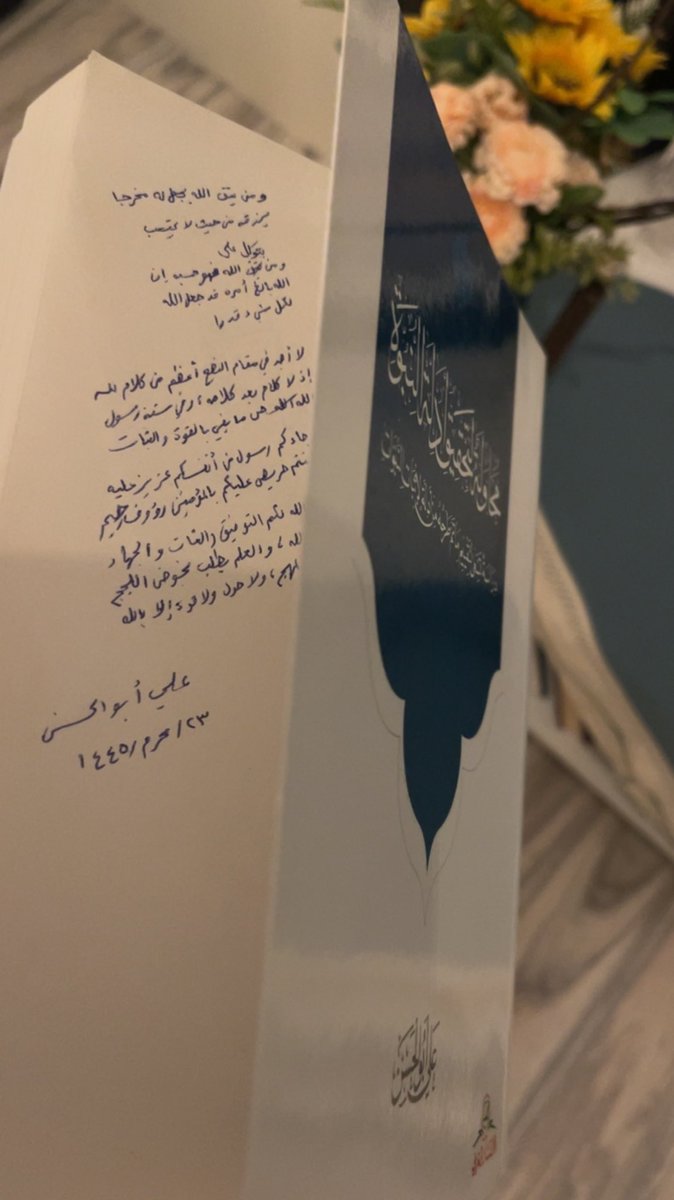 ومن يتق الله يجعل له مخرجا
يرزقه من حيث لا يحتسب
يتوكل على
ومن يتق الله فهو حسبه إن
الله بالغ أمره قد جعل الله
لكل شيء قدرا
لا أجد في مقام النصح أعظم من كلام الله
إذ لا كلام بعد كلامه، وفي سنة رسول
الله من ما يفي بالقوة والثبات
جاءكم رسول من أنفسكم عزيز عليه
عنتم حريص عليكم بالمؤمنين رؤوف رحيم
لله لكم التوفيق والثبات والجهاد
الله، والعلم يطلب بخوض اللجج
المهج، ولا حول ولا قوة إلا بالله
علي أبو الحسن
٢٣/محرم/١٤٤٥
محاولة لتحقيق أدلة النبوة
علي أبو الحسن